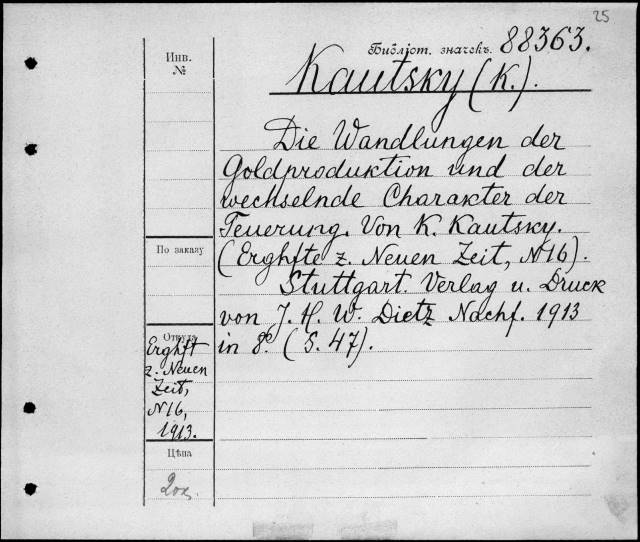 25
Библіот. значекъ. 88363.
Инв.
№
Kautsky (K.).
Die Wandlungen der
Goldproduktion und der
wechselnde Charakter der
Teuerung. Von K. Kautsky.
(Erghfte z. Neuen Zeit, № 16).
Stuttgart. Verlag u. Druck
von J. H. W. Dietz Nachf. 1913
in 8º. (S. 47).
По заказу
Откуда
Erghft
z. Neuen
Zeit,
№ 16,
1913.
Цѣна